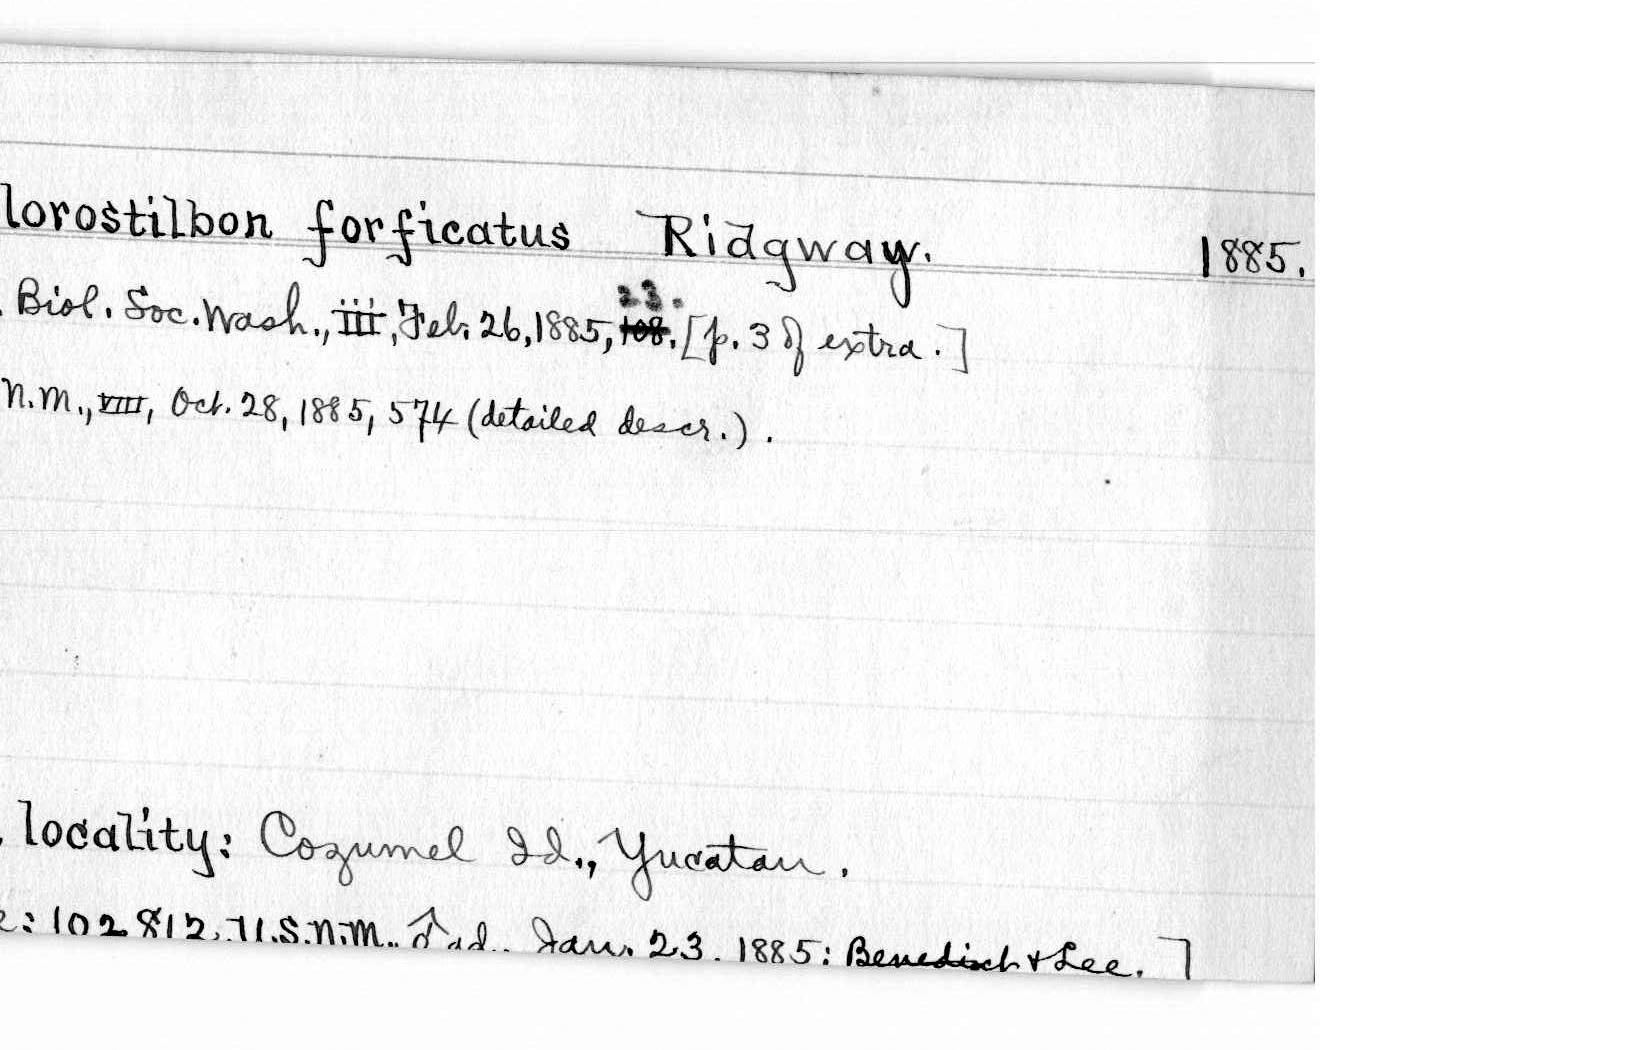 lorostilbon forficatus Ridgway. 1885.
Biol. Soc. Wash., III, Feb. 26, 1885, 23. [p. 3 of extra.]
N.M., VIII, Oct. 28, 1885, 574 (detailed descr.).
locality: Cozumel Id., Yucatan.
e: 102812, U.S.N.M. ♂ ad. Jan. 23. 1885: Benedict & Lee. ]